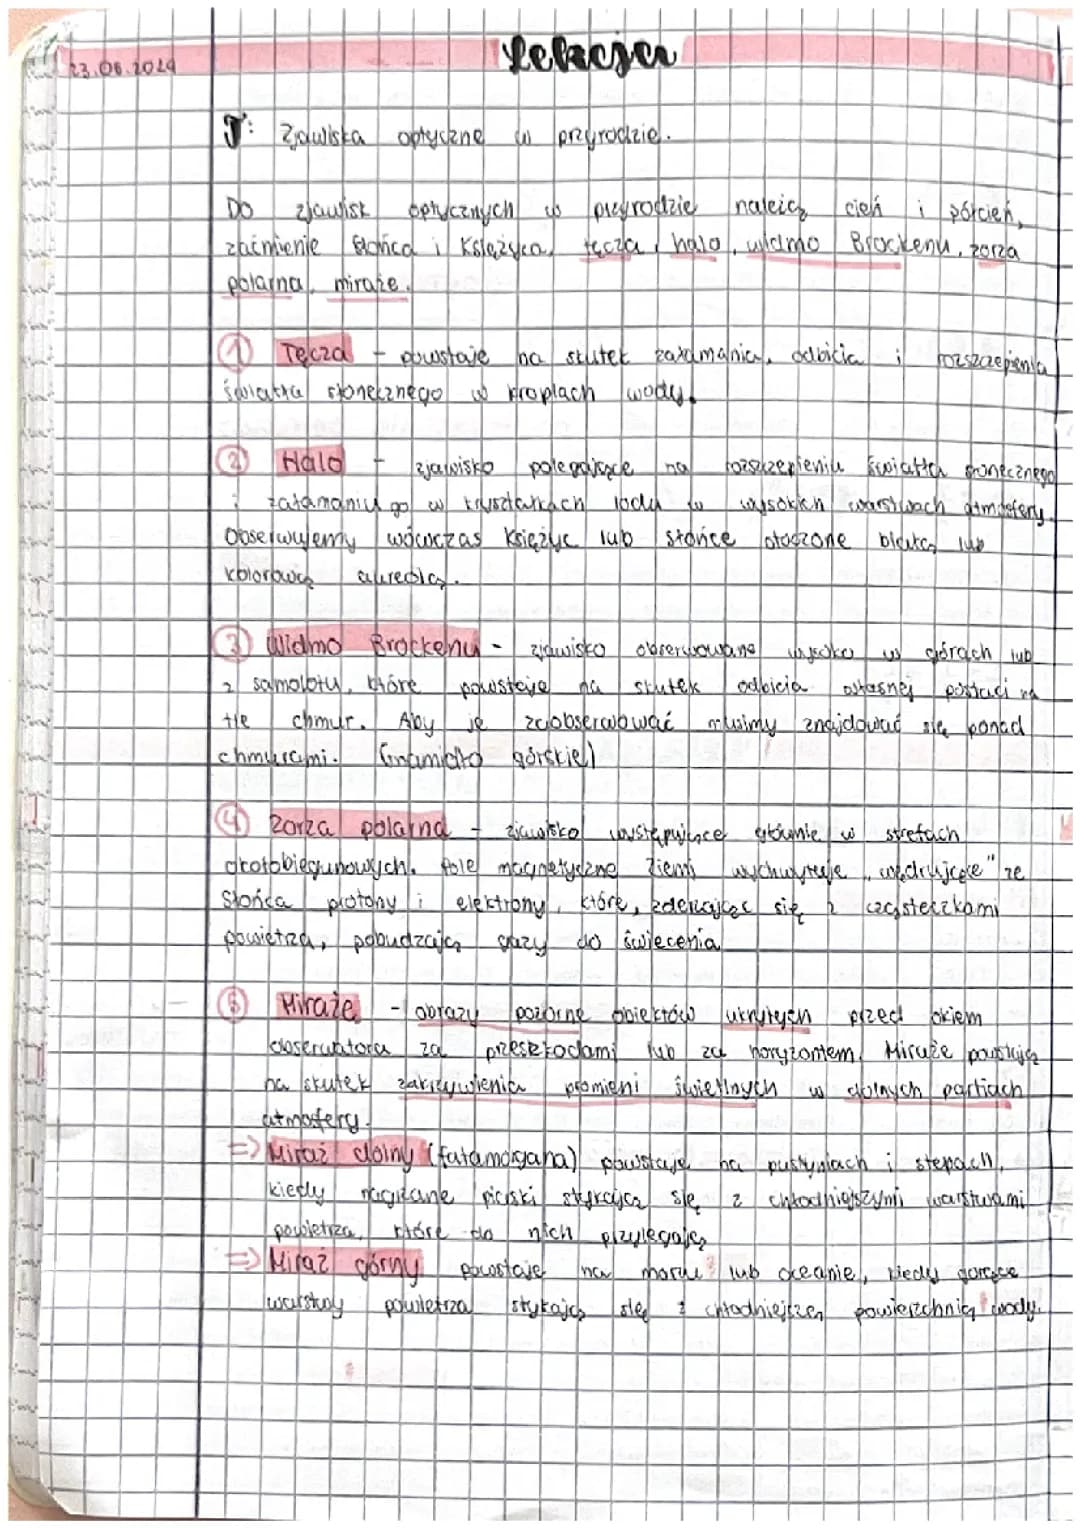 Lekcja
23.06.2024
T: Zjawiska optyczne w przyrodzie.
Do zjawisk optycznych w przyrodzie należą cień i półcień,
zaćmienie Słońca i Księżyca, tęcza, halo, widmo Brockenu, zorza
polarna, miraże.
① Tęcza - powstaje na skutek załamania, odbicia i rozszczepienia
światła słonecznego w kroplach wody.
② Halo - zjawisko polegające na rozszczepieniu światła słonecznego
i załamaniu go w kryształkach lodu w wysokich warstwach atmosfery.
Obserwujemy wówczas Księżyc lub słońce otoczone białką lub
kolorową aureolą.
③ Widmo Brockenu - zjawisko obserwowane wysoko w górach lub
z samolotu, które powstaje na skutek odbicia własnej postaci na
tle chmur. Aby je zaobserwować musimy znajdować się ponad
chmurami. (mamidło górskie)
④ Zorza polarna - zjawisko występujące głównie w strefach
okołobiegunowych. Pole magnetyczne Ziemi wychwytuje „wędrujące" ze
Słońca protony i elektrony, które, zderzając się z cząsteczkami
powietrza, pobudzają gazy do świecenia
⑤ Miraże - obrazy pozorne obiektów ukrytych przed okiem
obserwatora za przeszkodami lub za horyzontem. Miraże powstają
na skutek zakrzywienia promieni świetlnych w dolnych partiach
atmosfery.
=> Miraż dolny (fatamorgana) powstaje na pustyniach i stepach,
kiedy nagrzane piaski stykają się z chłodniejszymi warstwami
powietrza, które do nich przylegają
=> Miraż górny powstaje na morzu lub oceanie, kiedy gorące
warstwy powietrza stykają się z chłodniejszą powierzchnią wody.